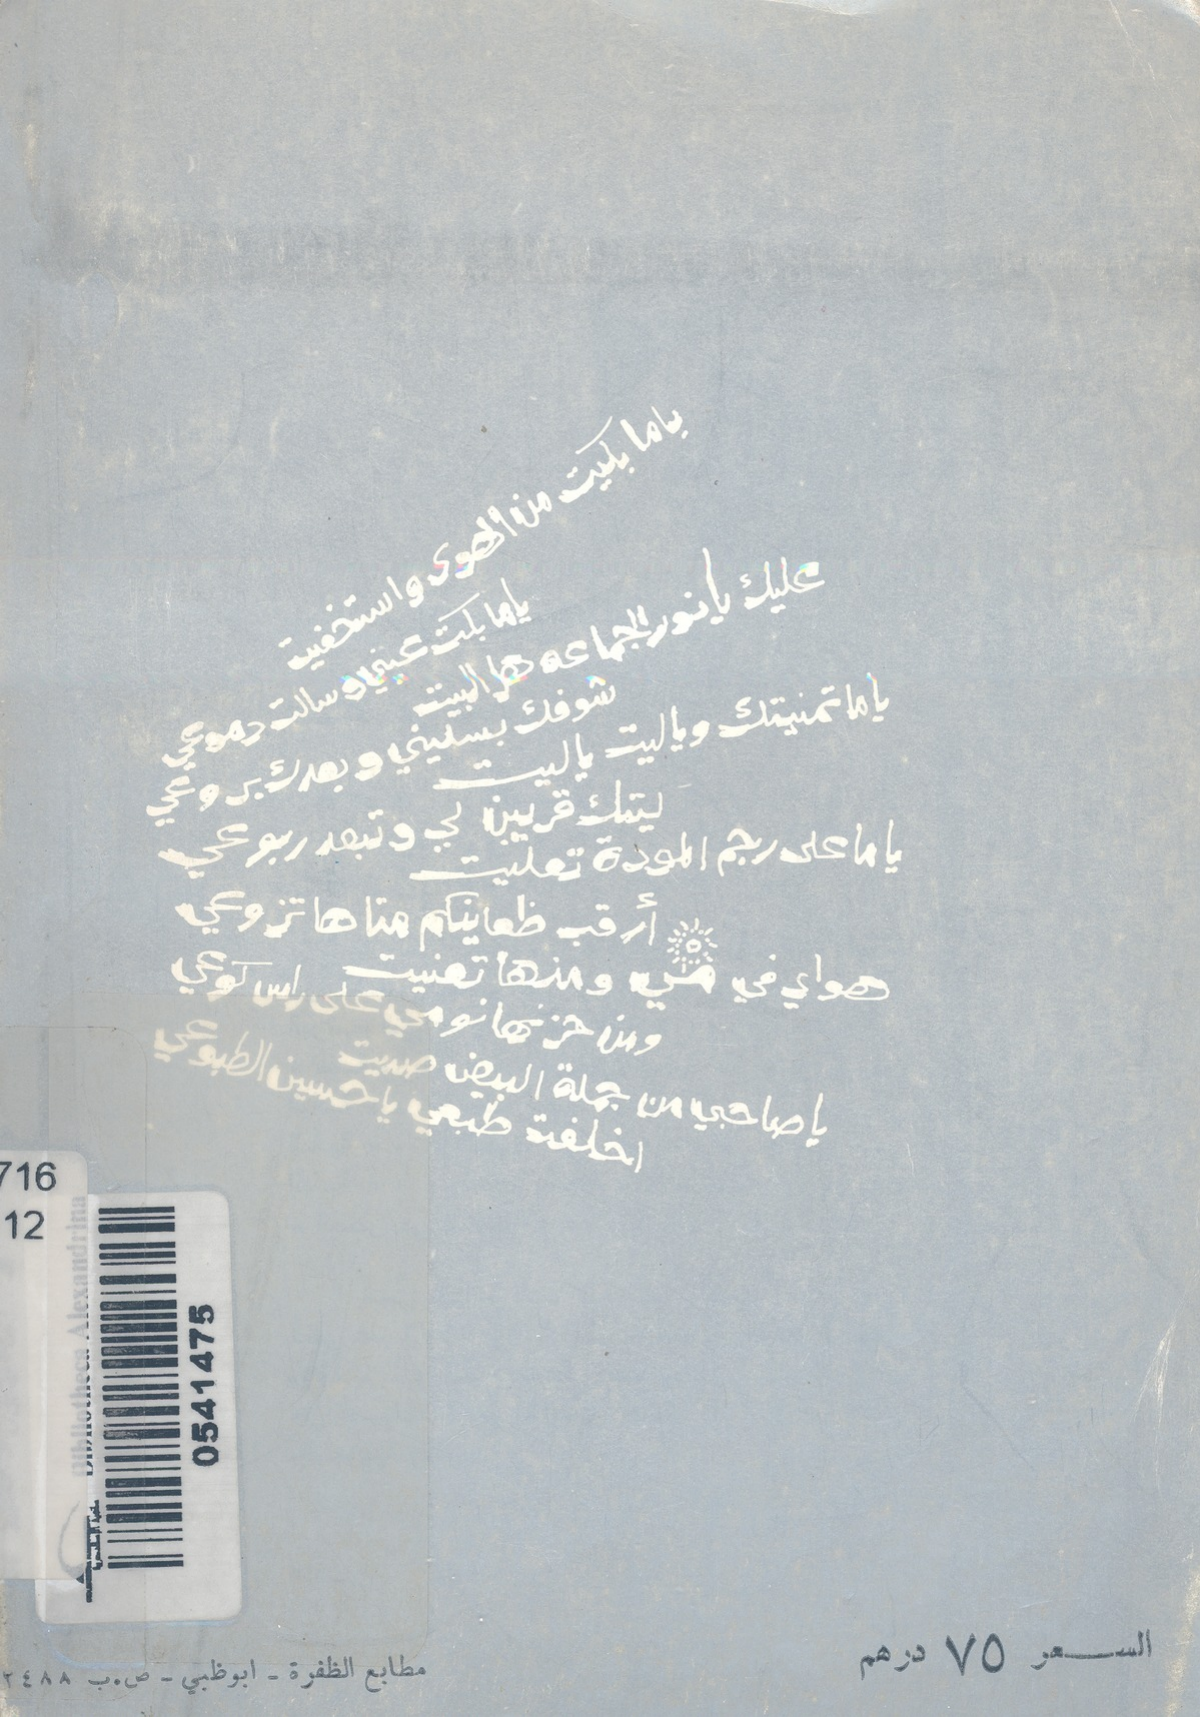 ياما بكيت من الهوى واستخفيت
ياما بكت عيني وسالت دموعي
عليك يا نور الجماعه هل البيت
شوفك يسليني وبعدك يروعي
ياما تمنيتك وياليت ياليت
ليتك قريبن لي وتبعد ربوعي
ياما على رجم المودة تعليت
أرقب ظعاينكم متاها تزوعي
هواي في مي ومنها تعنيت
ومن حزنها نومي على راس كوعي
يا صاحبي من جملة البيض صديت
اخلفت طبعي يا حسين الطبوعي
716
12
Bibliotheca Alexandrina
0541475
السعر ٧٥ درهم
مطابع الظفرة - ابوظبي - ص.ب ٢٤٨٨